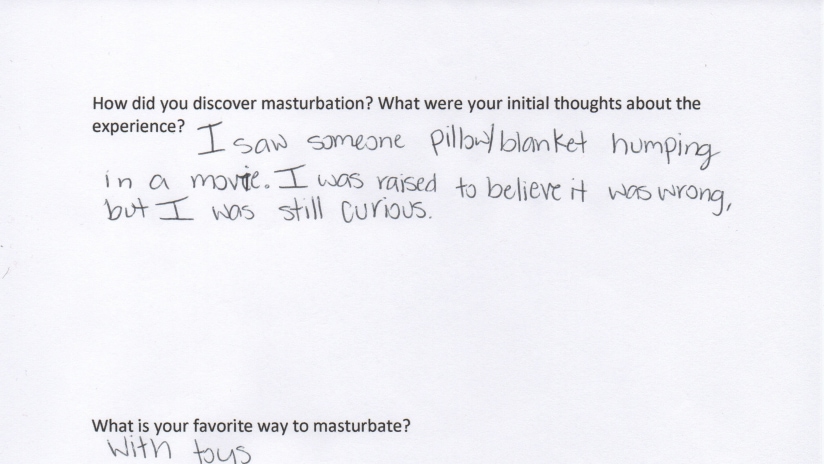 How did you discover masturbation? What were your initial thoughts about the
experience? I saw someone pillow/blanket humping
in a movie. I was raised to believe it was wrong,
but I was still curious.
What is your favorite way to masturbate?
With toys